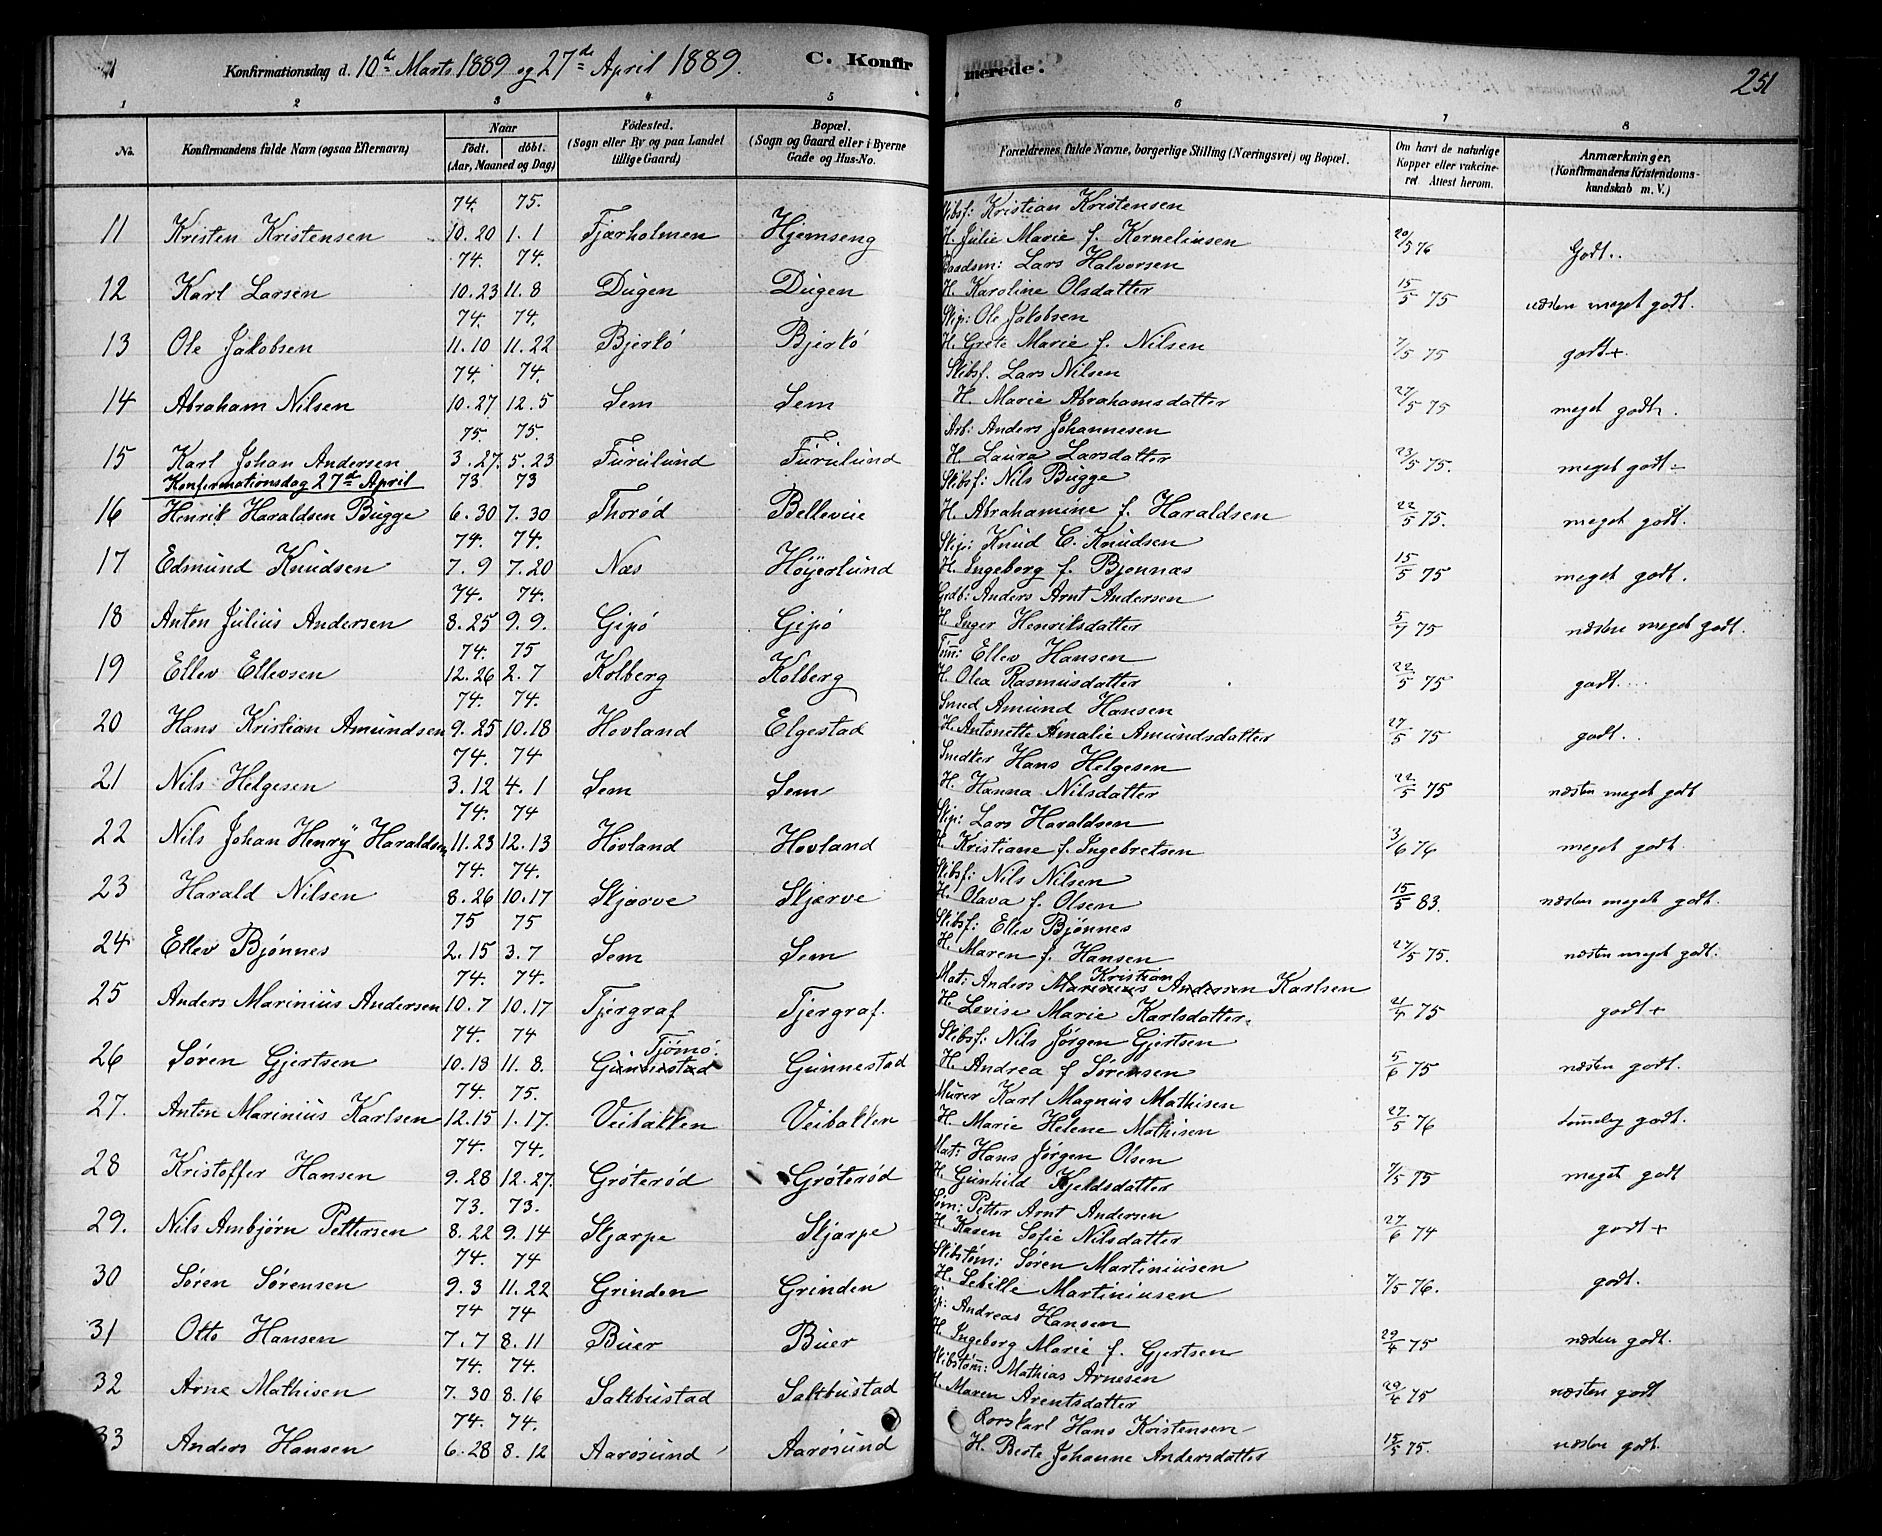 Konfirmationsdag d. 10de Marts 1889 og 27de April 1889. C. Konfir
merede. 251
1 2 3 4 5 6 7 8
No. Konfirmandens fulde Navn (ogsaa Efternavn) Naar født. døbt. (Aar, Maaned og Dag) Fødested. (Sogn eller By og paa Landet tillige Gaard) Bopæl. (Sogn og Gaard eller i Byerne Gade og Hus-No. Forældrenes fulde Navne, borgerlige Stilling (Næringsvei) og Bopæl. Om havt de naturlige Kopper eller vakcineret Attest herom. Anmærkninger. (Konfirmandens Kristendomskundskab m. V.)
74. 75. Skibsf: Kristian Kristensen
11 Kristen Kristensen 10.20 1.1 Fjærholmen Hjemseng H. Julie Marie f. Korneliusen 20/5 76 Godt.
74. 74. Baadsm: Lars Halvorsen
12 Karl Larsen 10.23 11.8 Dugen Dugen H. Karoline Olsdatter 15/5 75 næsten meget godt.
74. 74. Skip: Ole Jakobsen
13 Ole Jakobsen 11.10 11.22 Bjerkö Bjerkö H. Grete Marie f. Nilsen 7/5 75 godt+
74. 74. Skibsf. Lars Nilsen
14 Abraham Nilsen 10.27 12.5 Sem Sem H. Marie Abrahamsdatter 27/5 75 meget godt.
75. 75. Arb: Anders Johannesen
15 Karl Johan Andersen 3.27. 5.23 Furulund Furulund H. Laura Larsdatter 23/5 75. meget godt ÷
Konfirmationsdag 27de April 73 73 Skibsf: Nils Bugge
16 Henrik Haraldsen Bugge 6.30 7.30 Thorød Bellevue H. Abrahamine f. Haraldsen 22/5 75. meget godt.
74. 74. Skip: Knud C. Knudsen
17 Edmund Knudsen 7.9 7.20 Næs Höyerlund H. Ingeborg f. Bjønnæs 15/5 75 meget godt.
74. 74. Gedb: Anders Arnt Andersen
18 Anton Julius Andersen 8.25 9.9. Gipö Gipö H. Inger Henriksdatter 5/7 75 næsten meget godt.
74. 75 Töm: Ellev Hansen
19 Ellev Ellevsen 12.26 2.7 Kolberg Kolberg H. Olea Rasmusdatter 22/5 75 godt.
74. 74. Smed Amund Hansen
20 Hans Kristian Amundsen 9.25 10.18 Hovland Elgestad H. Antonette Amalie Amundsdatter 27/5 75 godt.
74. 74 Snedker Hans Helgesen
21 Nils Helgesen 3.12 4.1 Sem Sem H. Hanna Nilsdatter 22/5 75 næsten meget godt
74. 74 Skip: Lars Haraldsen
22 Nils Johan Henry Haraldsen 11.23 12.13 Hovland Hovland H. Kristiane f. Ingebretsen 3/6 76 meget godt.
74. 74. Skibsf: Nils Nilsen
23 Harald Nilsen 8.26 10.17 Skjærve Skjerve H. Olava f. Olsen 15/5 83. næsten meget godt.
75 75 Skibsf: Ellev Bjønnes
24 Ellev Bjønnes 2.15 3.7 Sem Sem H. Maren f. Hansen 27/5 75. næsten meget godt.
74. 74. Mat: Anders Marinius Andersen Kristian Karlsen
25 Anders Marinius Andersen 10.7 10.17 Tjergraf Tjergraf. H. Lovise Marie Karlsdatter. 2/4 75 godt +
74. 74 Skibsf: Nils Jørgen Gjertsen
26 Søren Gjertsen 10.18 11.8. Gunnestad Tjömö. Gunnestad H. Andrea f Sørensen 5/6 75 næsten godt.
74. 75. Murer Karl Magnus Mathisen
27. Anton Marinius Karlsen 12.15 1.17. Veibakken Veibakken H. Marie Helene Mathisen 27/5 76 temmelig godt.
74. 74. Mat: Hans Jørgen Olsen
28 Kristoffer Hansen 9.28 12.27. Gröteröd Gröteröd H. Gunhild Kjeldsdatter 7/5 75 meget godt
73. 73. Töm: Petter Arnt Andersen
29. Nils Ambjørn Pettersen 8.22 9.14 Skjærpe Skjærpe H. Karen Sofie Nilsdatter 27/6 74 godt +
74. 74 Skibstöm: Søren Martiniusen
30 Søren Sørensen 9.3 11.22 Grinden Grinden H. Sebille Martiniusen 7/5 76. godt.
74 74 Skip: Andreas Hansen
31 Otto Hansen 7.7 8.11 Buer Buer H. Ingeborg Marie f. Gjertsen 29/4 75 næsten godt.
74. 74. Skibstöm: Mathias Arnesen
32 Arne Mathisen 7.30 8.16 Saltbustad Saltbustad H. Maren Arentsdatter 29/4 75 næsten godt
74. 74. Rorskarl Hans Kristensen
33 Anders Hansen 6.28 8.12 Aarösund Aarösund H. Berte Johanne Andersdatter 15/5 75. næsten godt.